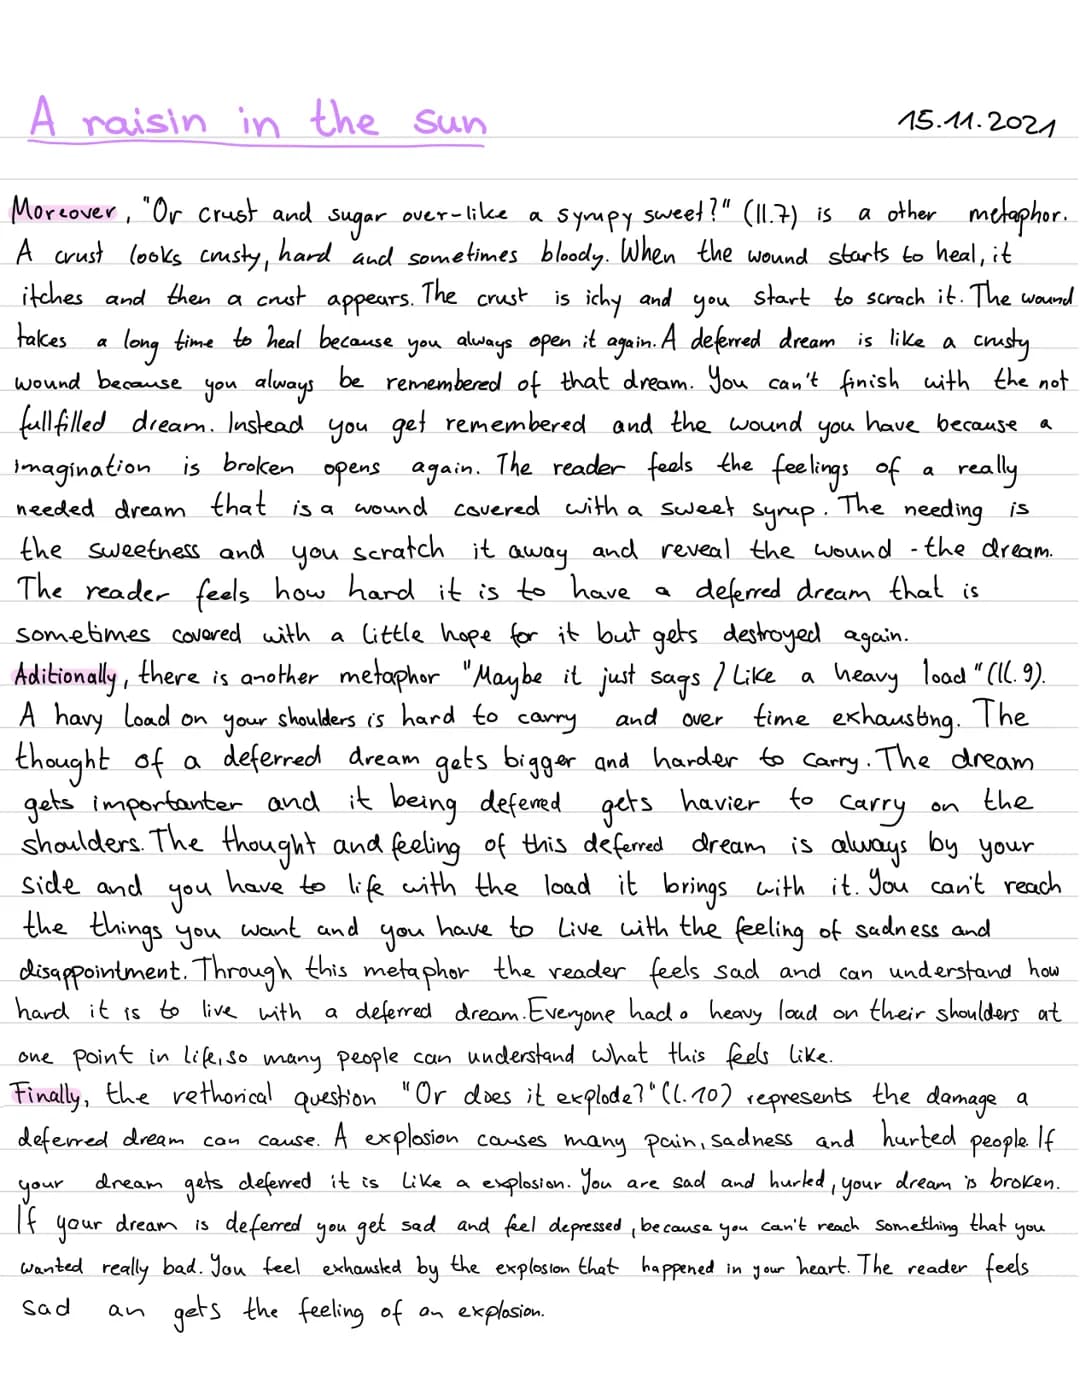 A raisin in the sun
15.11.2021
Moreover, "Or crust and sugar over-like a syrupy sweet?" (ll.7) is a other metaphor.
A crust looks crusty, hard and sometimes bloody. When the wound starts to heal, it
itches and then a crust appears. The crust is ichy and you start to scrach it. The wound
takes a long time to heal because you always open it again. A deferred dream is like a crusty
wound because you always be remembered of that dream. You can't finish with the not
fullfilled dream. Instead you get remembered and the wound you have because a
imagination is broken opens again. The reader feels the feelings of a really
needed dream that is a wound covered with a sweet syrup. The needing is
the sweetness and you scratch it away and reveal the wound - the dream.
The reader feels how hard it is to have a deferred dream that is
sometimes covered with a little hope for it but gets destroyed again.
Aditionally, there is another metaphor "Maybe it just sags / Like a heavy load" (ll. 9).
A havy load on your shoulders is hard to carry and over time exhausting. The
thought of a deferred dream gets bigger and harder to carry. The dream
gets importanter and it being deferred gets havier to carry on the
shoulders. The thought and feeling of this deferred dream is always by your
side and you have to life with the load it brings with it. You can't reach
the things you want and you have to live with the feeling of sadness and
disappointment. Through this metaphor the reader feels sad and can understand how
hard it is to live with a deferred dream. Everyone had a heavy load on their shoulders at
one point in life, so many people can understand what this feels like.
Finally, the rethorical question "Or does it explode?" (l. 10) represents the damage a
deferred dream can cause. A explosion causes many pain, sadness and hurted people. If
your dream gets deferred it is like a explosion. You are sad and hurted, your dream is broken.
If your dream is deferred you get sad and feel depressed, because you can't reach something that you
wanted really bad. You feel exhausted by the explosion that happened in your heart. The reader feels
sad an gets the feeling of an explosion.